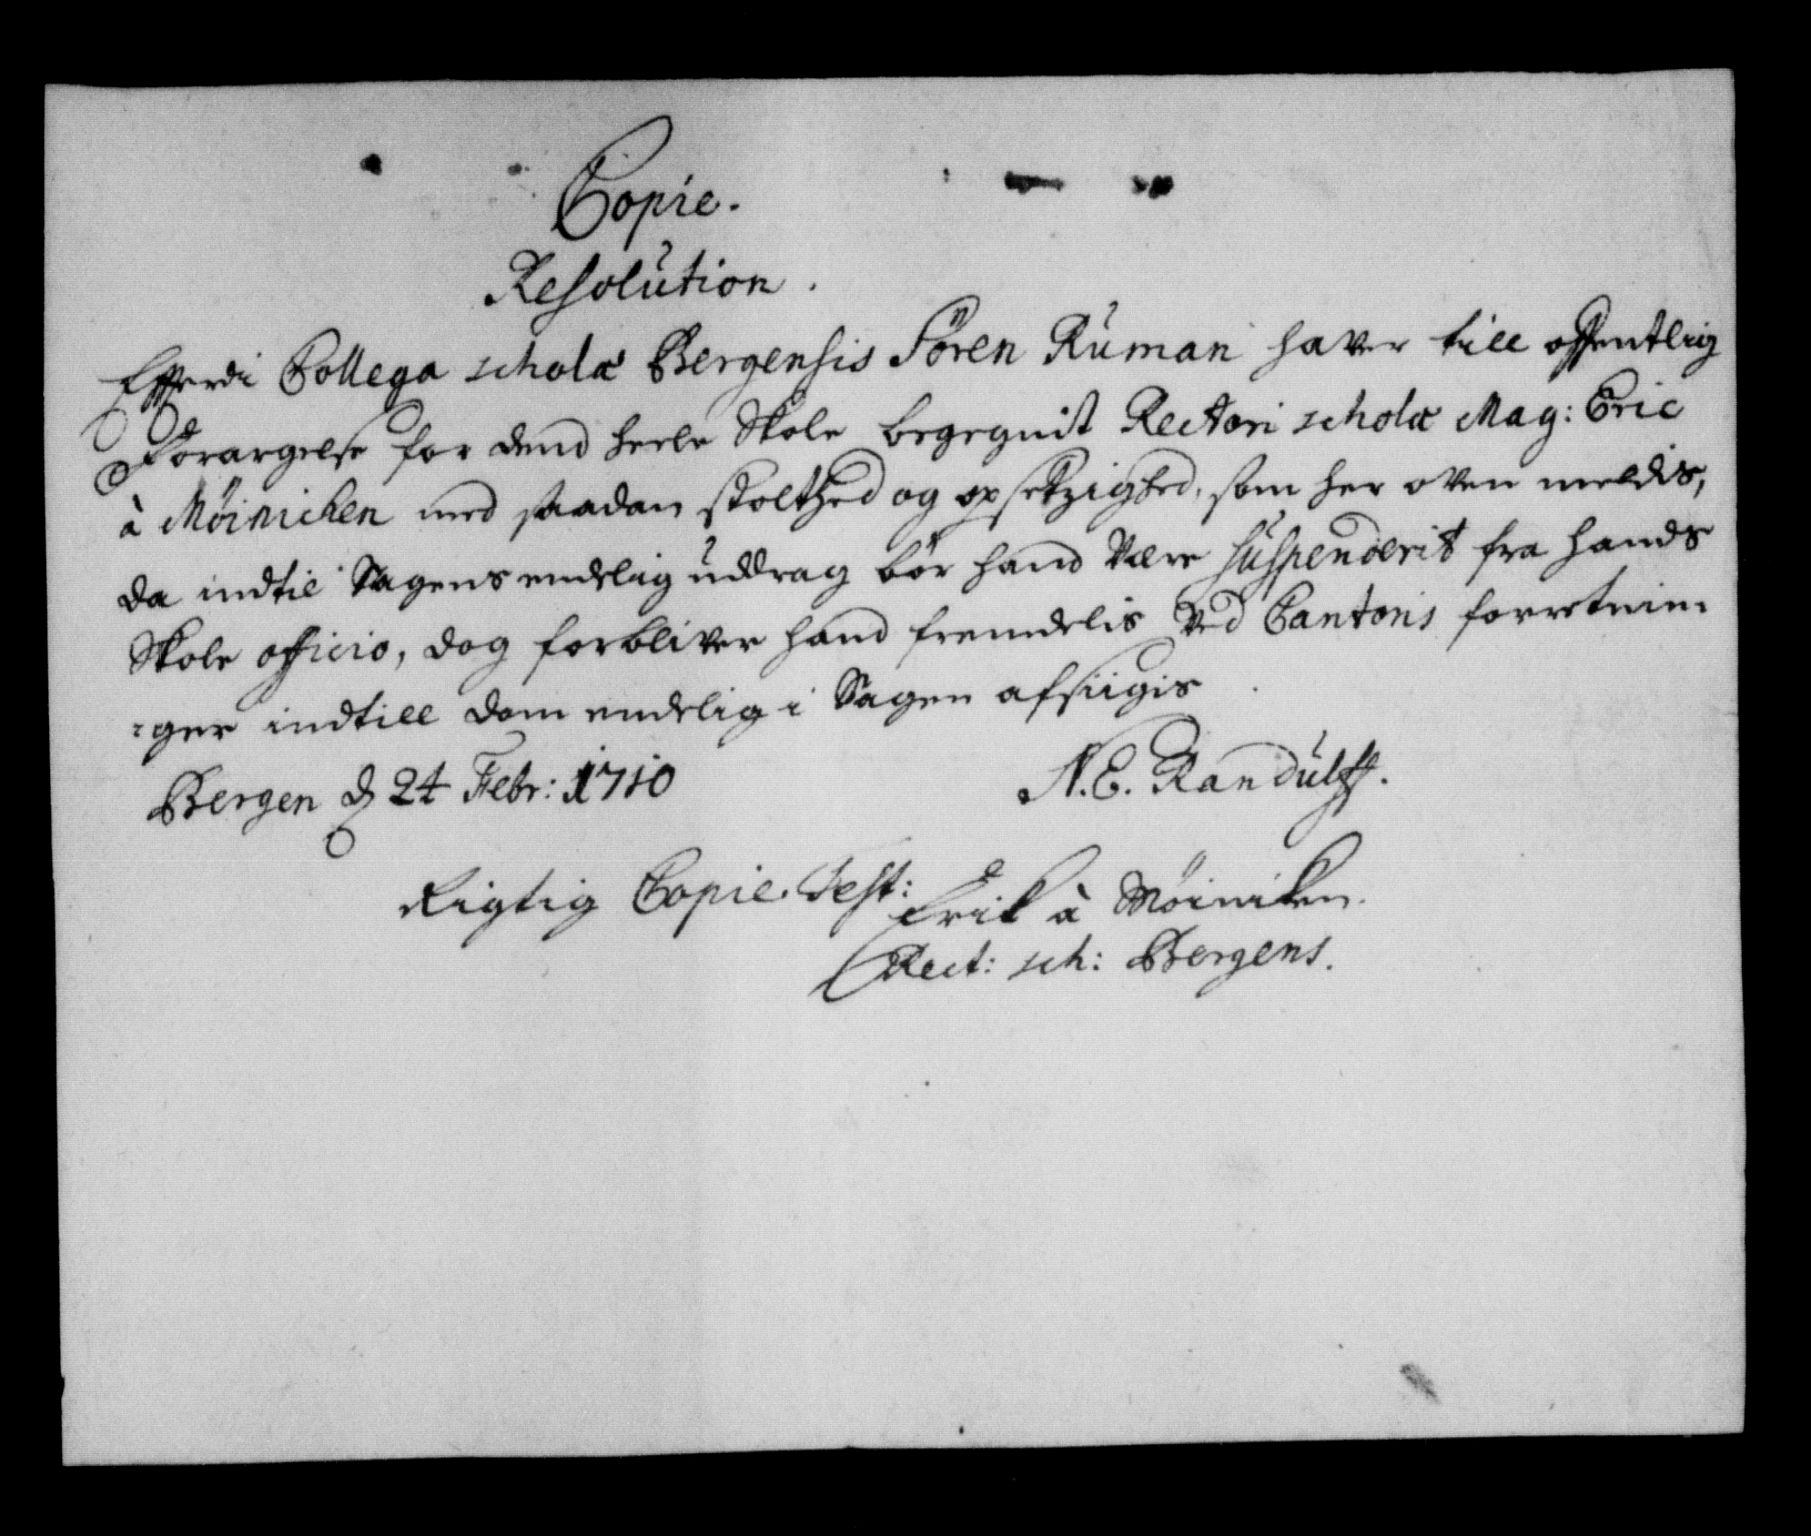 Copie.
Resolution.
Efterdi Collega scholæ Bergensis Sören Ruman haver till offentlig
Forargelse for dend heele Skole begegnit Rectori scholæ Mag: Eric
à Möinichen med saadan stolthed og opsetzighed, som her oven meldis,
da indtil Sagens endelig uddrag bör hand være suspenderit fra hands
Skole officio, dog forbliver hand fremdelis ved Cantoris forretnin:
:ger indtill dom endelig i Sagen afsiigis.
Bergen d 24 Febr: 1710
N. E. Randulff.
Rigtig Copie. Test:
Erik à Möiniken.
Rect: sch: Bergens.